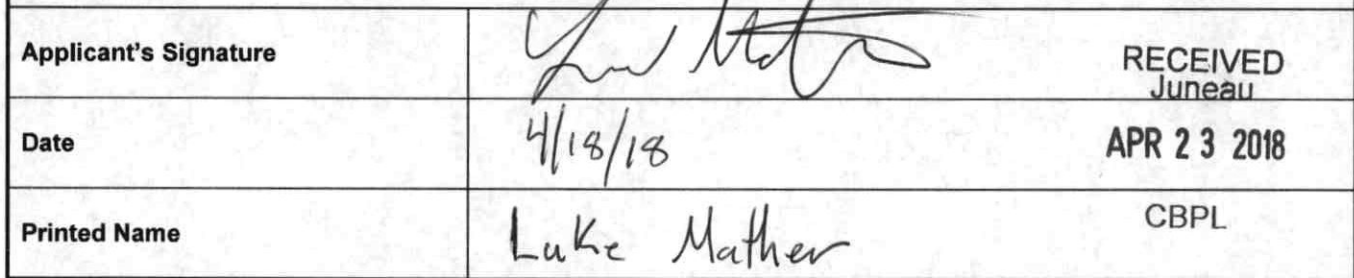 Applicant's Signature
RECEIVED
Juneau
Date 4/18/18 APR 23 2018
Printed Name Luke Mather CBPL